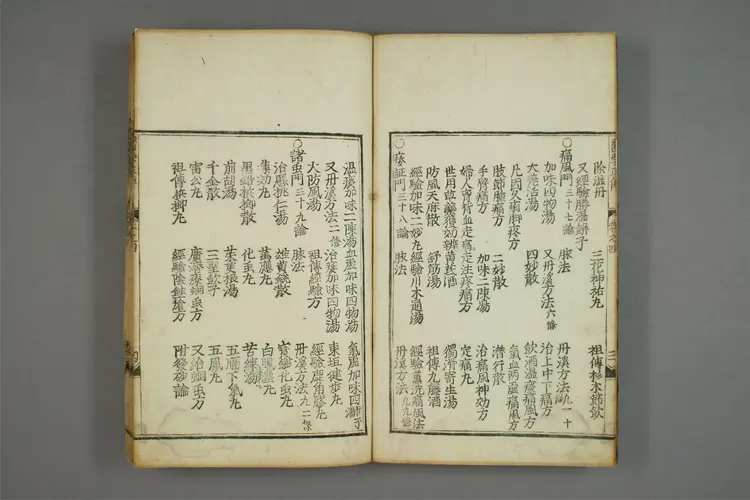 除濕丹　三花神祐丸　祖傳杉木節飲
又經驗勝濕餅子
○痛風門三十七論　脉法　丹溪方法論一十
加味四物湯　又丹溪方法六條　治上中下痛方
大羗活湯　四妙散　飲酒濕痰痛風方
凡因又痛脚疼方　氣血兩虛痛風方
肢節腫痛方　二妙散　潛行散
手臂痛方　加味二陳湯　治痛風神効方
婦人脊背血走痛走注疼痛方　定痛丸
世用草藥獲効辨　獨活寄生湯
防風天麻散　舒筋湯　祖傳九藤酒
經驗加味二妙丸　經驗川木通湯　經驗薰洗痛風法
○痿証門三十八論　脉法　丹溪方法九條
濕痰加味二陳湯　血虛加味四物湯　氣虛加味四
又丹溪方法二條　治痿加味四物湯　東垣健步丸
大防風湯　祖傳經驗方　經驗鹿角膠丸
○諸虫門三十九論　脉法　丹溪方法九二條
治腸挑仁湯　雄黄銳散　實變化虫丸
集効丸　萬應丸　白
黑錫檳榔散　化虫丸　苦練湯
前胡湯　茱萸根湯　五膈下氣丸
千金散　三聖飲子　五鳳丸
雷公丸　廣濟療蚘虫方　又治蚘虫方
祖傳檳榔丸　經驗陰蝕瘡方　附發砂論